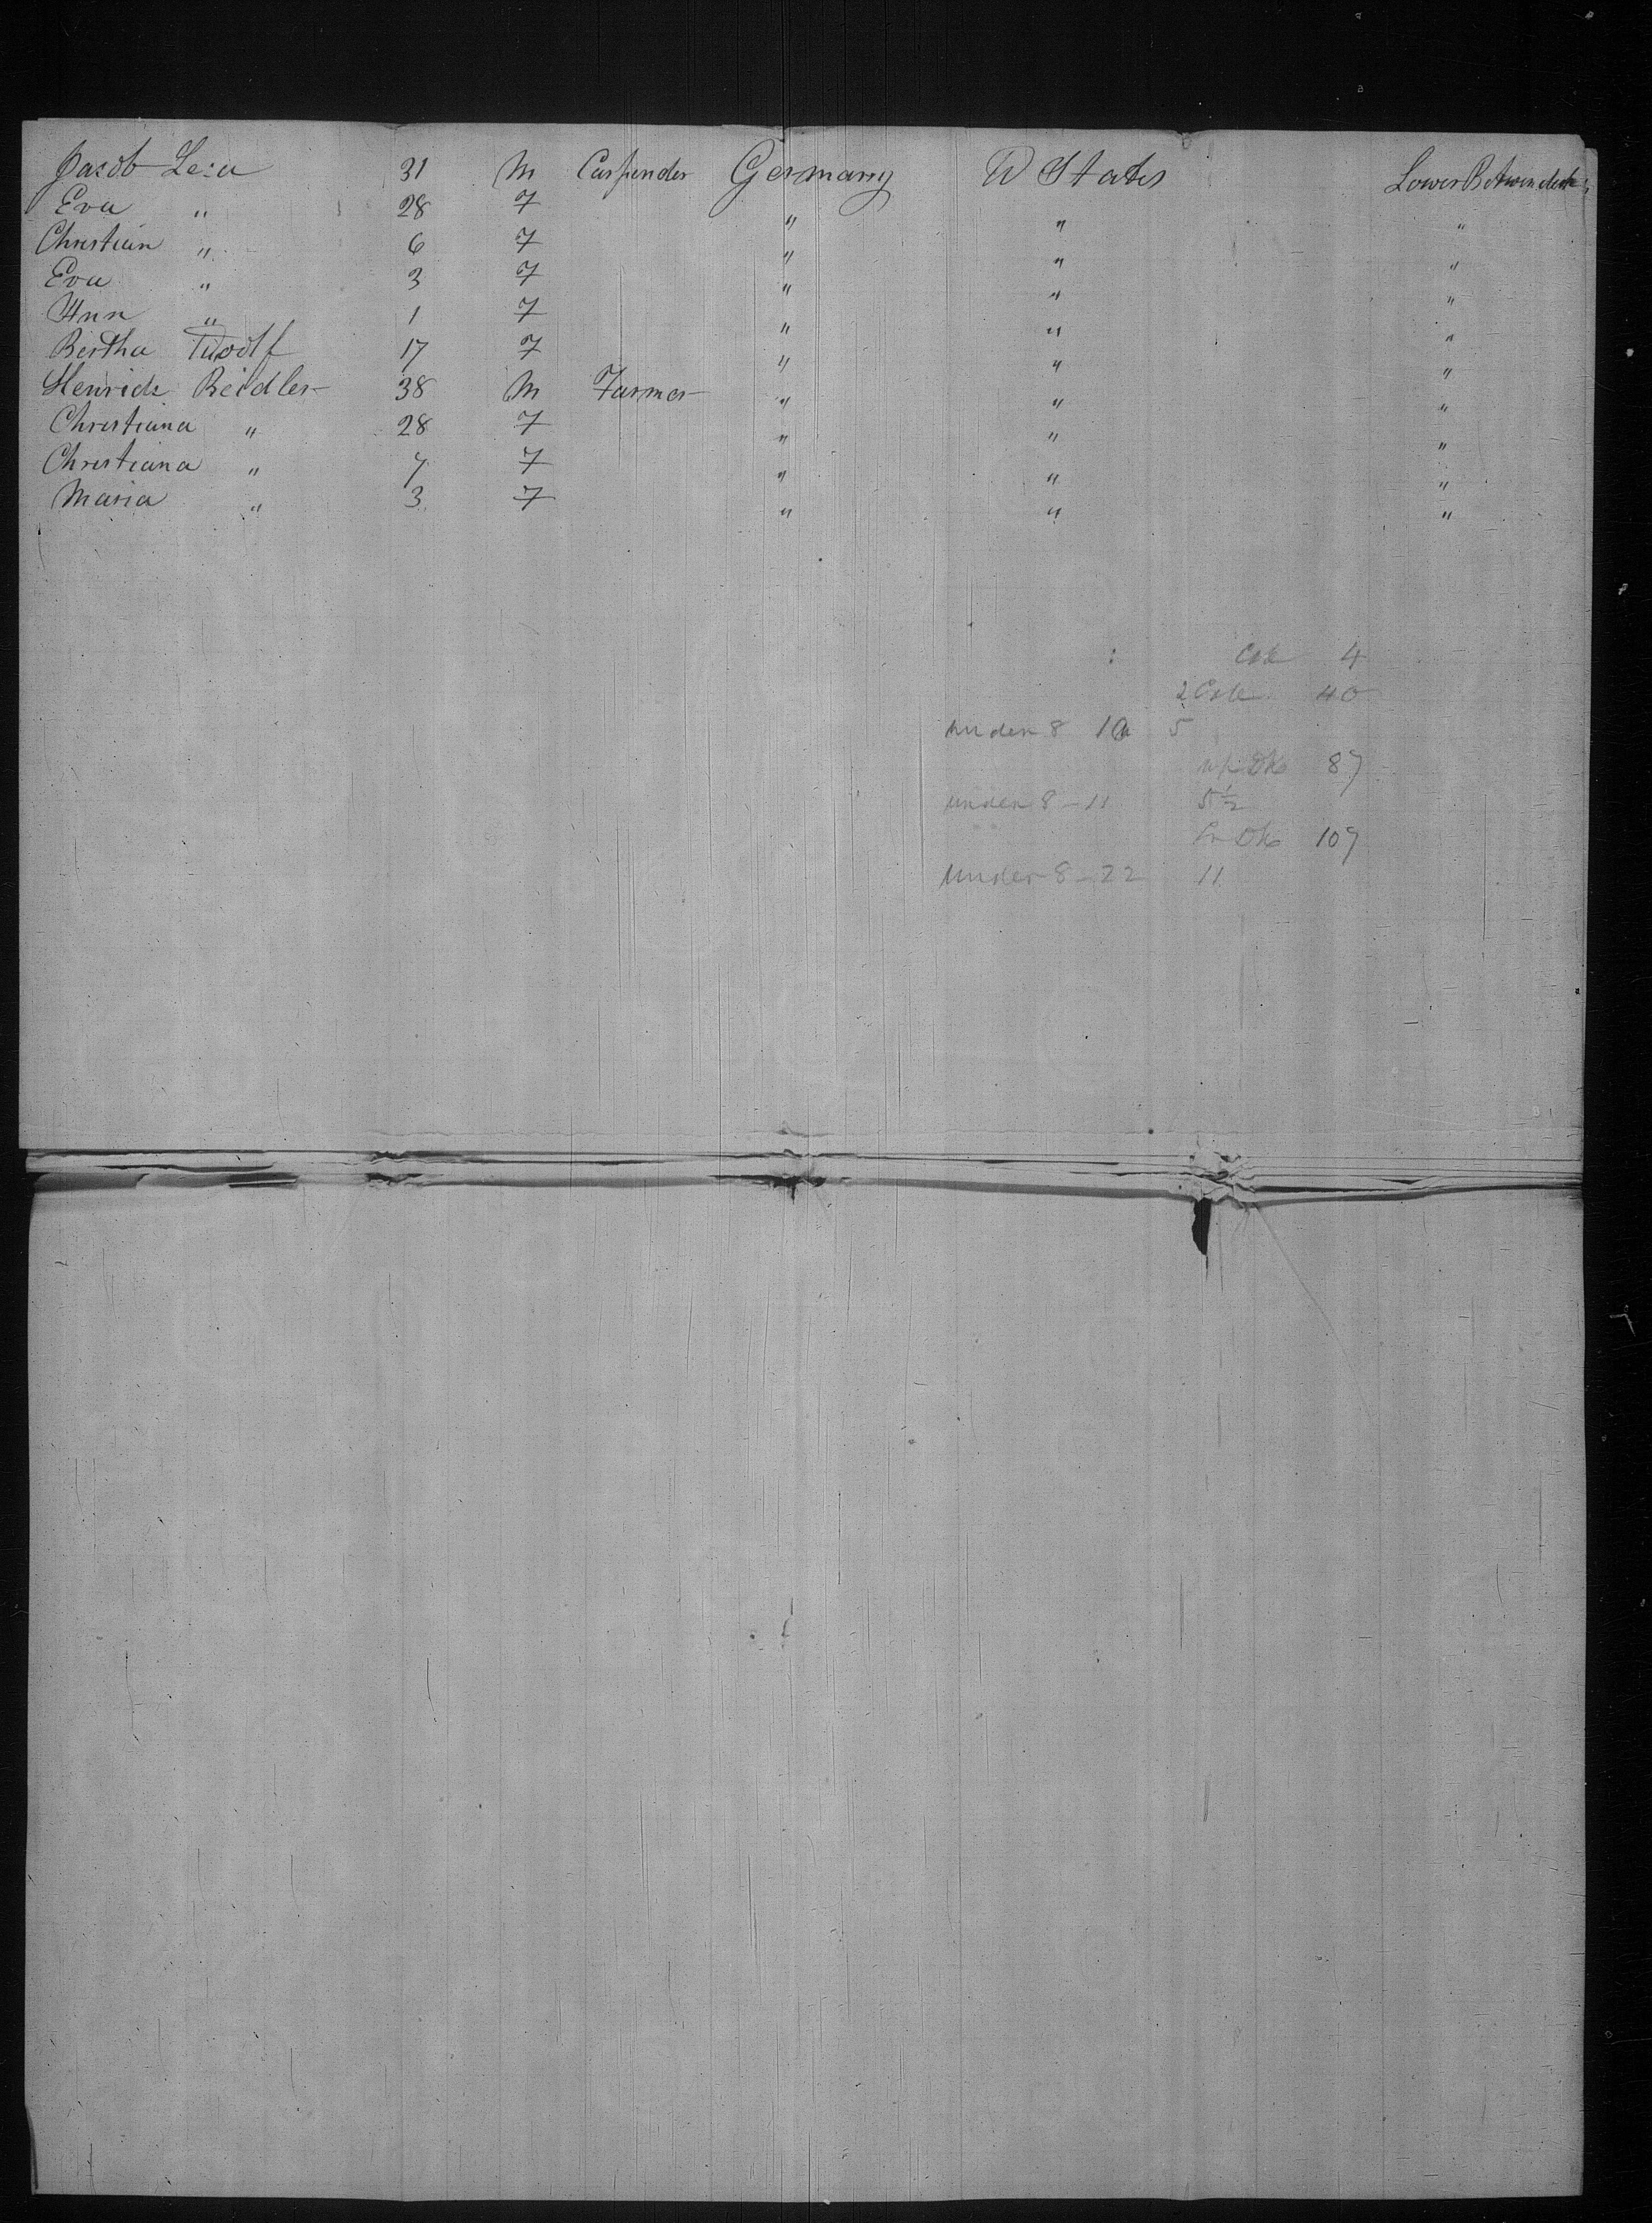 Jacob Leza 31 M Carpender Germany U States Lower Betwendeck
Eva " 28 F " " "
Christian " 6 F " " "
Eva " 3 F " " "
Ann " 1 F " " "
Bertha 17 F " " "
Henrich Reidler 38 M Farmer " " "
Christiana " 28 F " " "
Christiana " 7 F " " "
Maria " 3 F " " "
4
2 40
under 8 10 5
up Dk 87
under 8 - 11 5½
Lr Dk 107
under 8 - 22 11